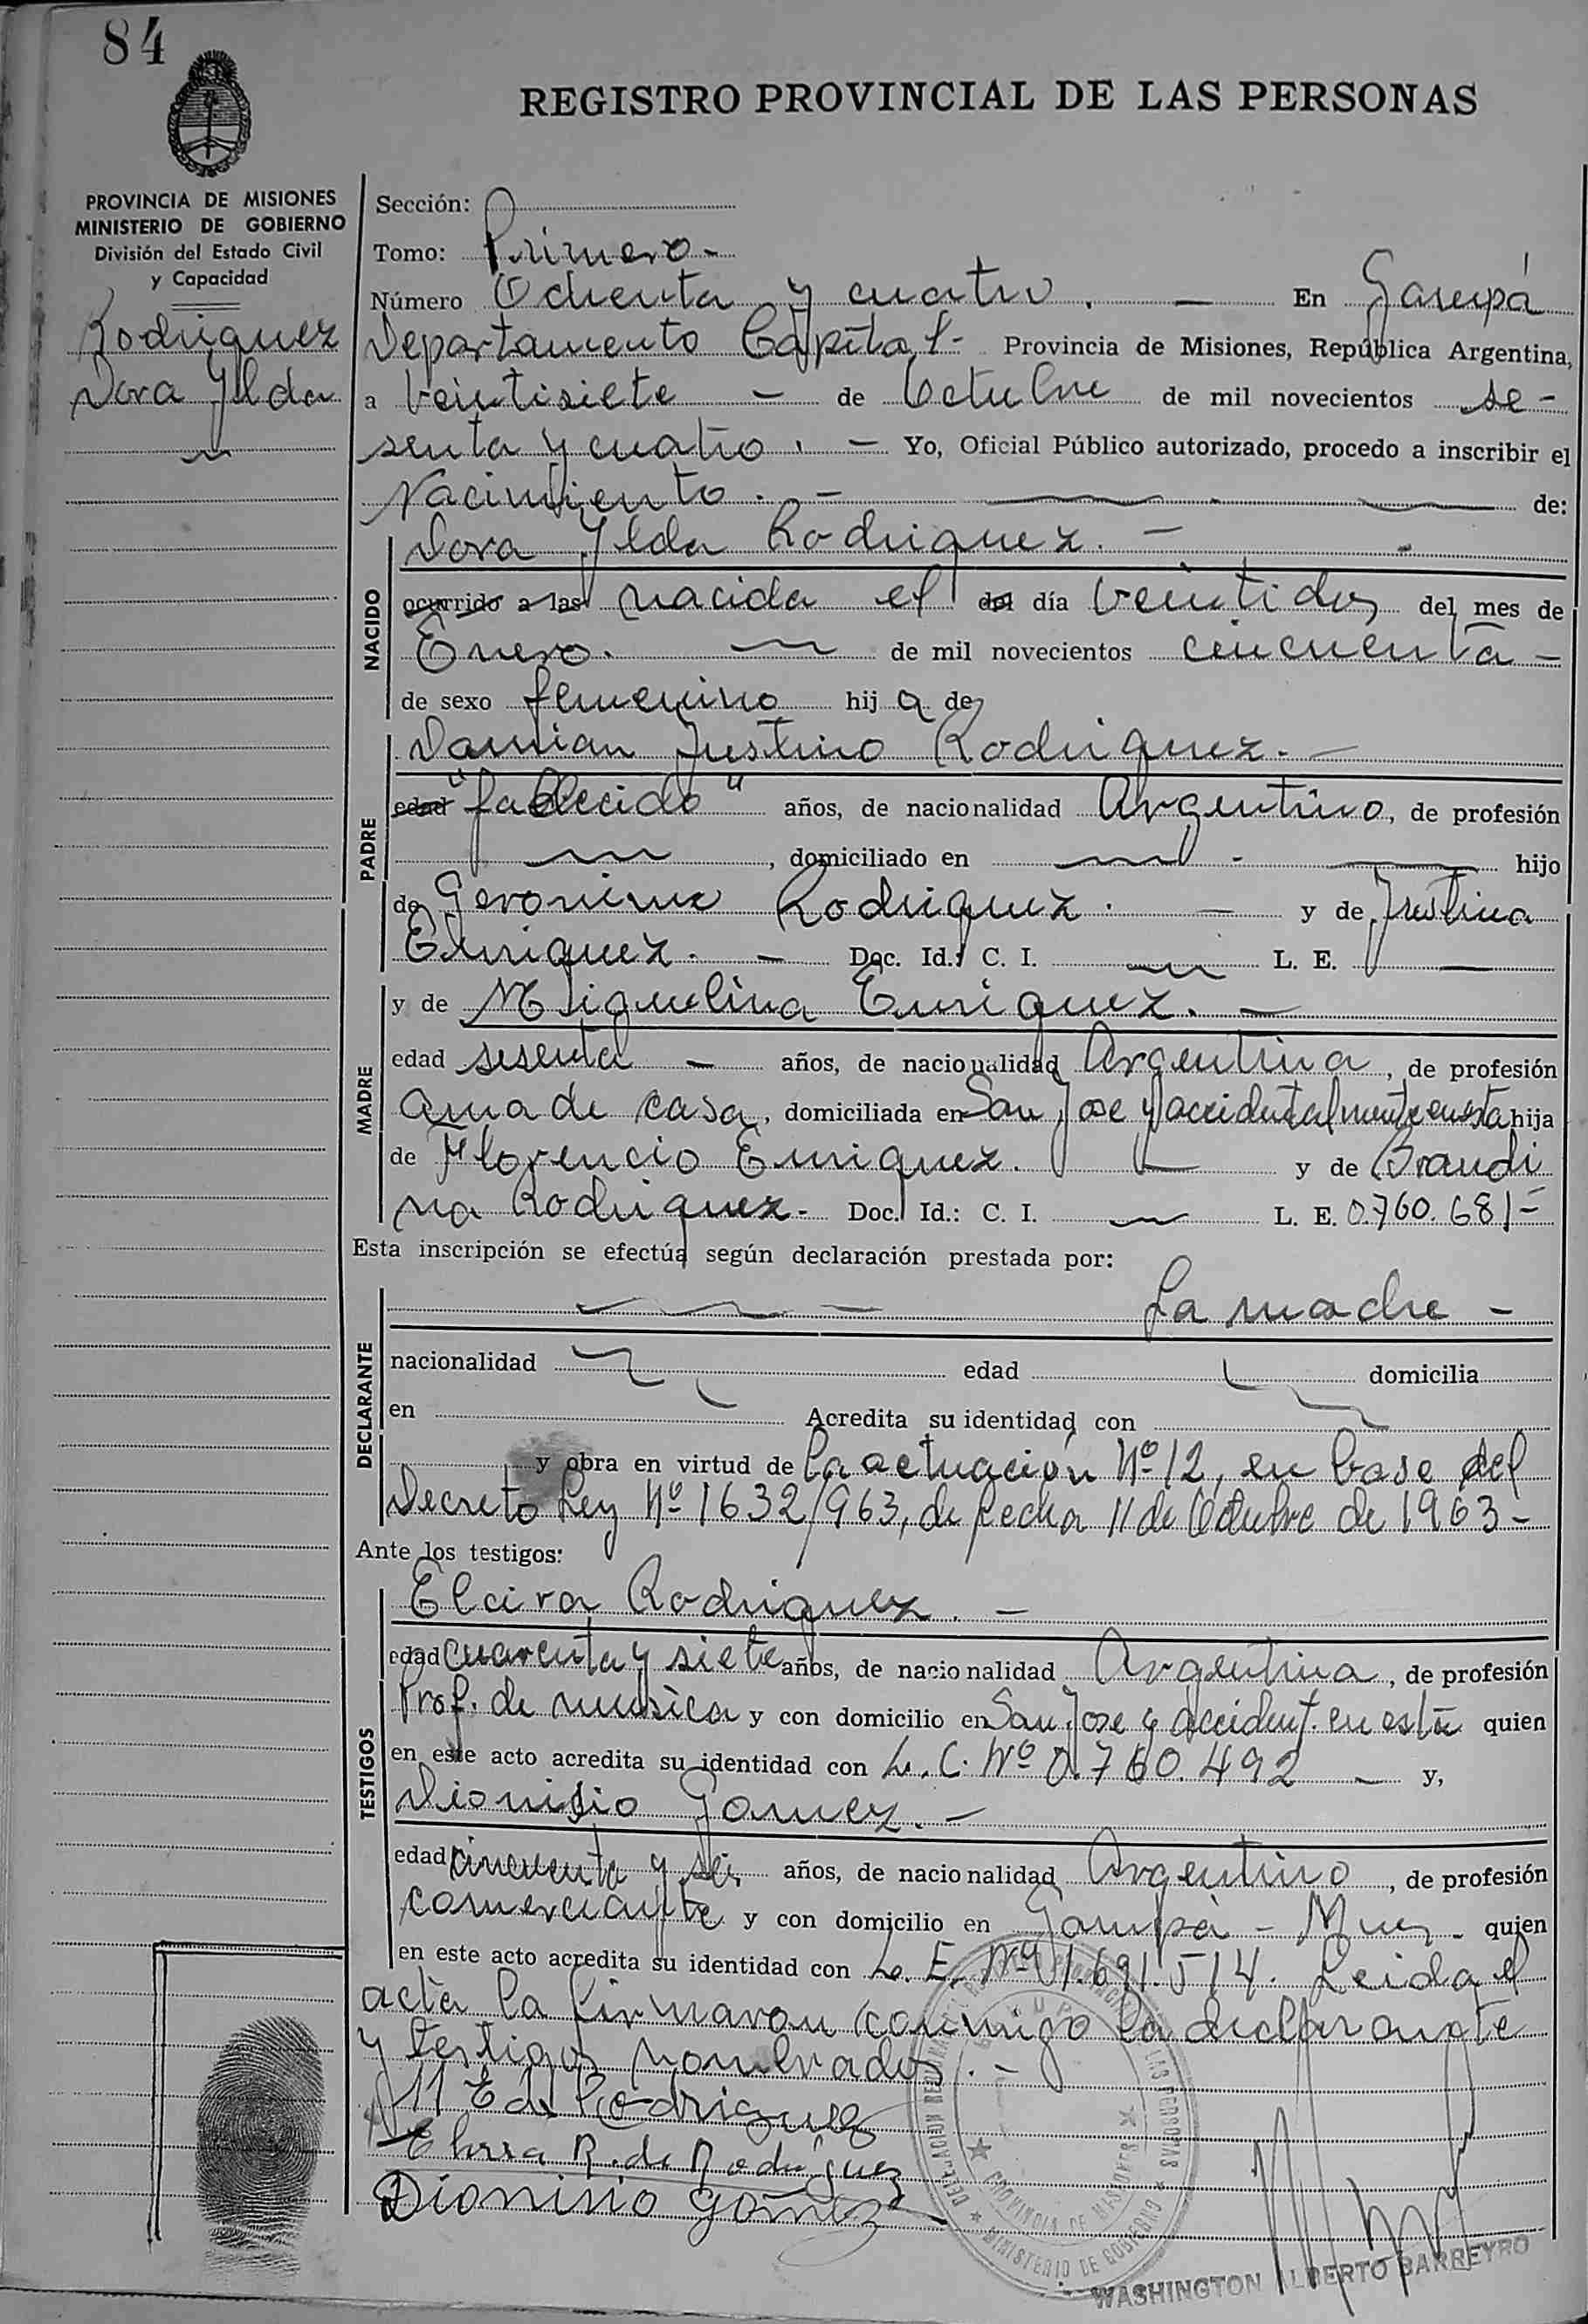 84
REGISTRO PROVINCIAL DE LAS PERSONAS
PROVINCIA DE MISIONES
MINISTERIO DE GOBIERNO
División del Estado Civil
y Capacidad
Rodriguez
Dora Ylda
Sección:
Tomo: Primero -
Número Ochenta y cuatro . - En Garupá
Departamento Capital - Provincia de Misiones, República Argentina,
a Veintisiete - de Octubre de mil novecientos se -
senta y cuatro . - Yo, Oficial Público autorizado, procedo a inscribir el
Nacimiento . - de:
NACIDO
Dora Ylda Rodriguez . -
ocurrido a las nacida el del día Veintidos del mes de
Enero. de mil novecientos cincuenta -
de sexo femenino hija de
PADRE
Damian Justino Rodriguez . -
edad "fallecido" años, de nacionalidad Argentino, de profesión
, domiciliado en - hijo
de Geronimo Rodriguez . - y de Justina
Enriquez . - Doc. Id.: C. I. L. E. -
MADRE
y de Miguelina Enriquez . -
edad sesenta - años, de nacionalidad Argentina, de profesión
ama de casa, domiciliada en San Jose y accidentalmente en esta hija
de Florencio Enriquez . - y de Brandi
na Rodriguez - Doc. Id.: C. I. L. E. 0.760.681 -
Esta inscripción se efectúa según declaración prestada por:
DECLARANTE
La madre -
nacionalidad edad domicilia
en Acredita su identidad con
y obra en virtud de la actuación Nº 12, en base del
Decreto Ley Nº 1632/963, de fecha 11 de Octubre de 1963 -
Ante los testigos:
TESTIGOS
Elcira Rodriguez . -
edad cuarenta y siete años, de nacionalidad Argentina, de profesión
Prof. de musica y con domicilio en San Jose y accident. en esta quien
en este acto acredita su identidad con L. C. Nº 0.760.492 - y,
Dionisio Gomez . -
edad cincuenta y seis años, de nacionalidad Argentino, de profesión
comerciante y con domicilio en Garupá - Mnes - quien
en este acto acredita su identidad con L. E. Nº 1.691.514. Leida el
acta la firmaron conmigo la declarante
y testigos nombrados . -
M E de Rodriguez
Elcira R. de Rodriguez
Dionisio Gomez
PROVINCIA DE MISIONES
MINISTERIO DE GOBIERNO
WASHINGTON ALBERTO BARREYRO